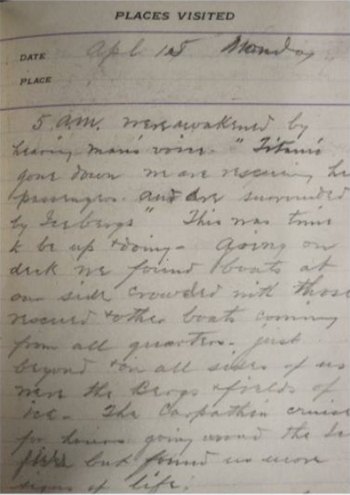 PLACES VISITED
DATE Apl 15 Monday
PLACE
5 a.m. were awakened by
hearing man's voice. "Titanic
gone down we are rescuing her
passengers and are surrounded
by Icebergs" This was time
to be up & doing - Going on
deck we found boats at
our side crowded with those
rescued & other boats coming
from all quarters. just
beyond & on all sides of us
were the bergs & fields of
ice - The Carpathia cruised
for hours going round the
but found no more
signs of life.